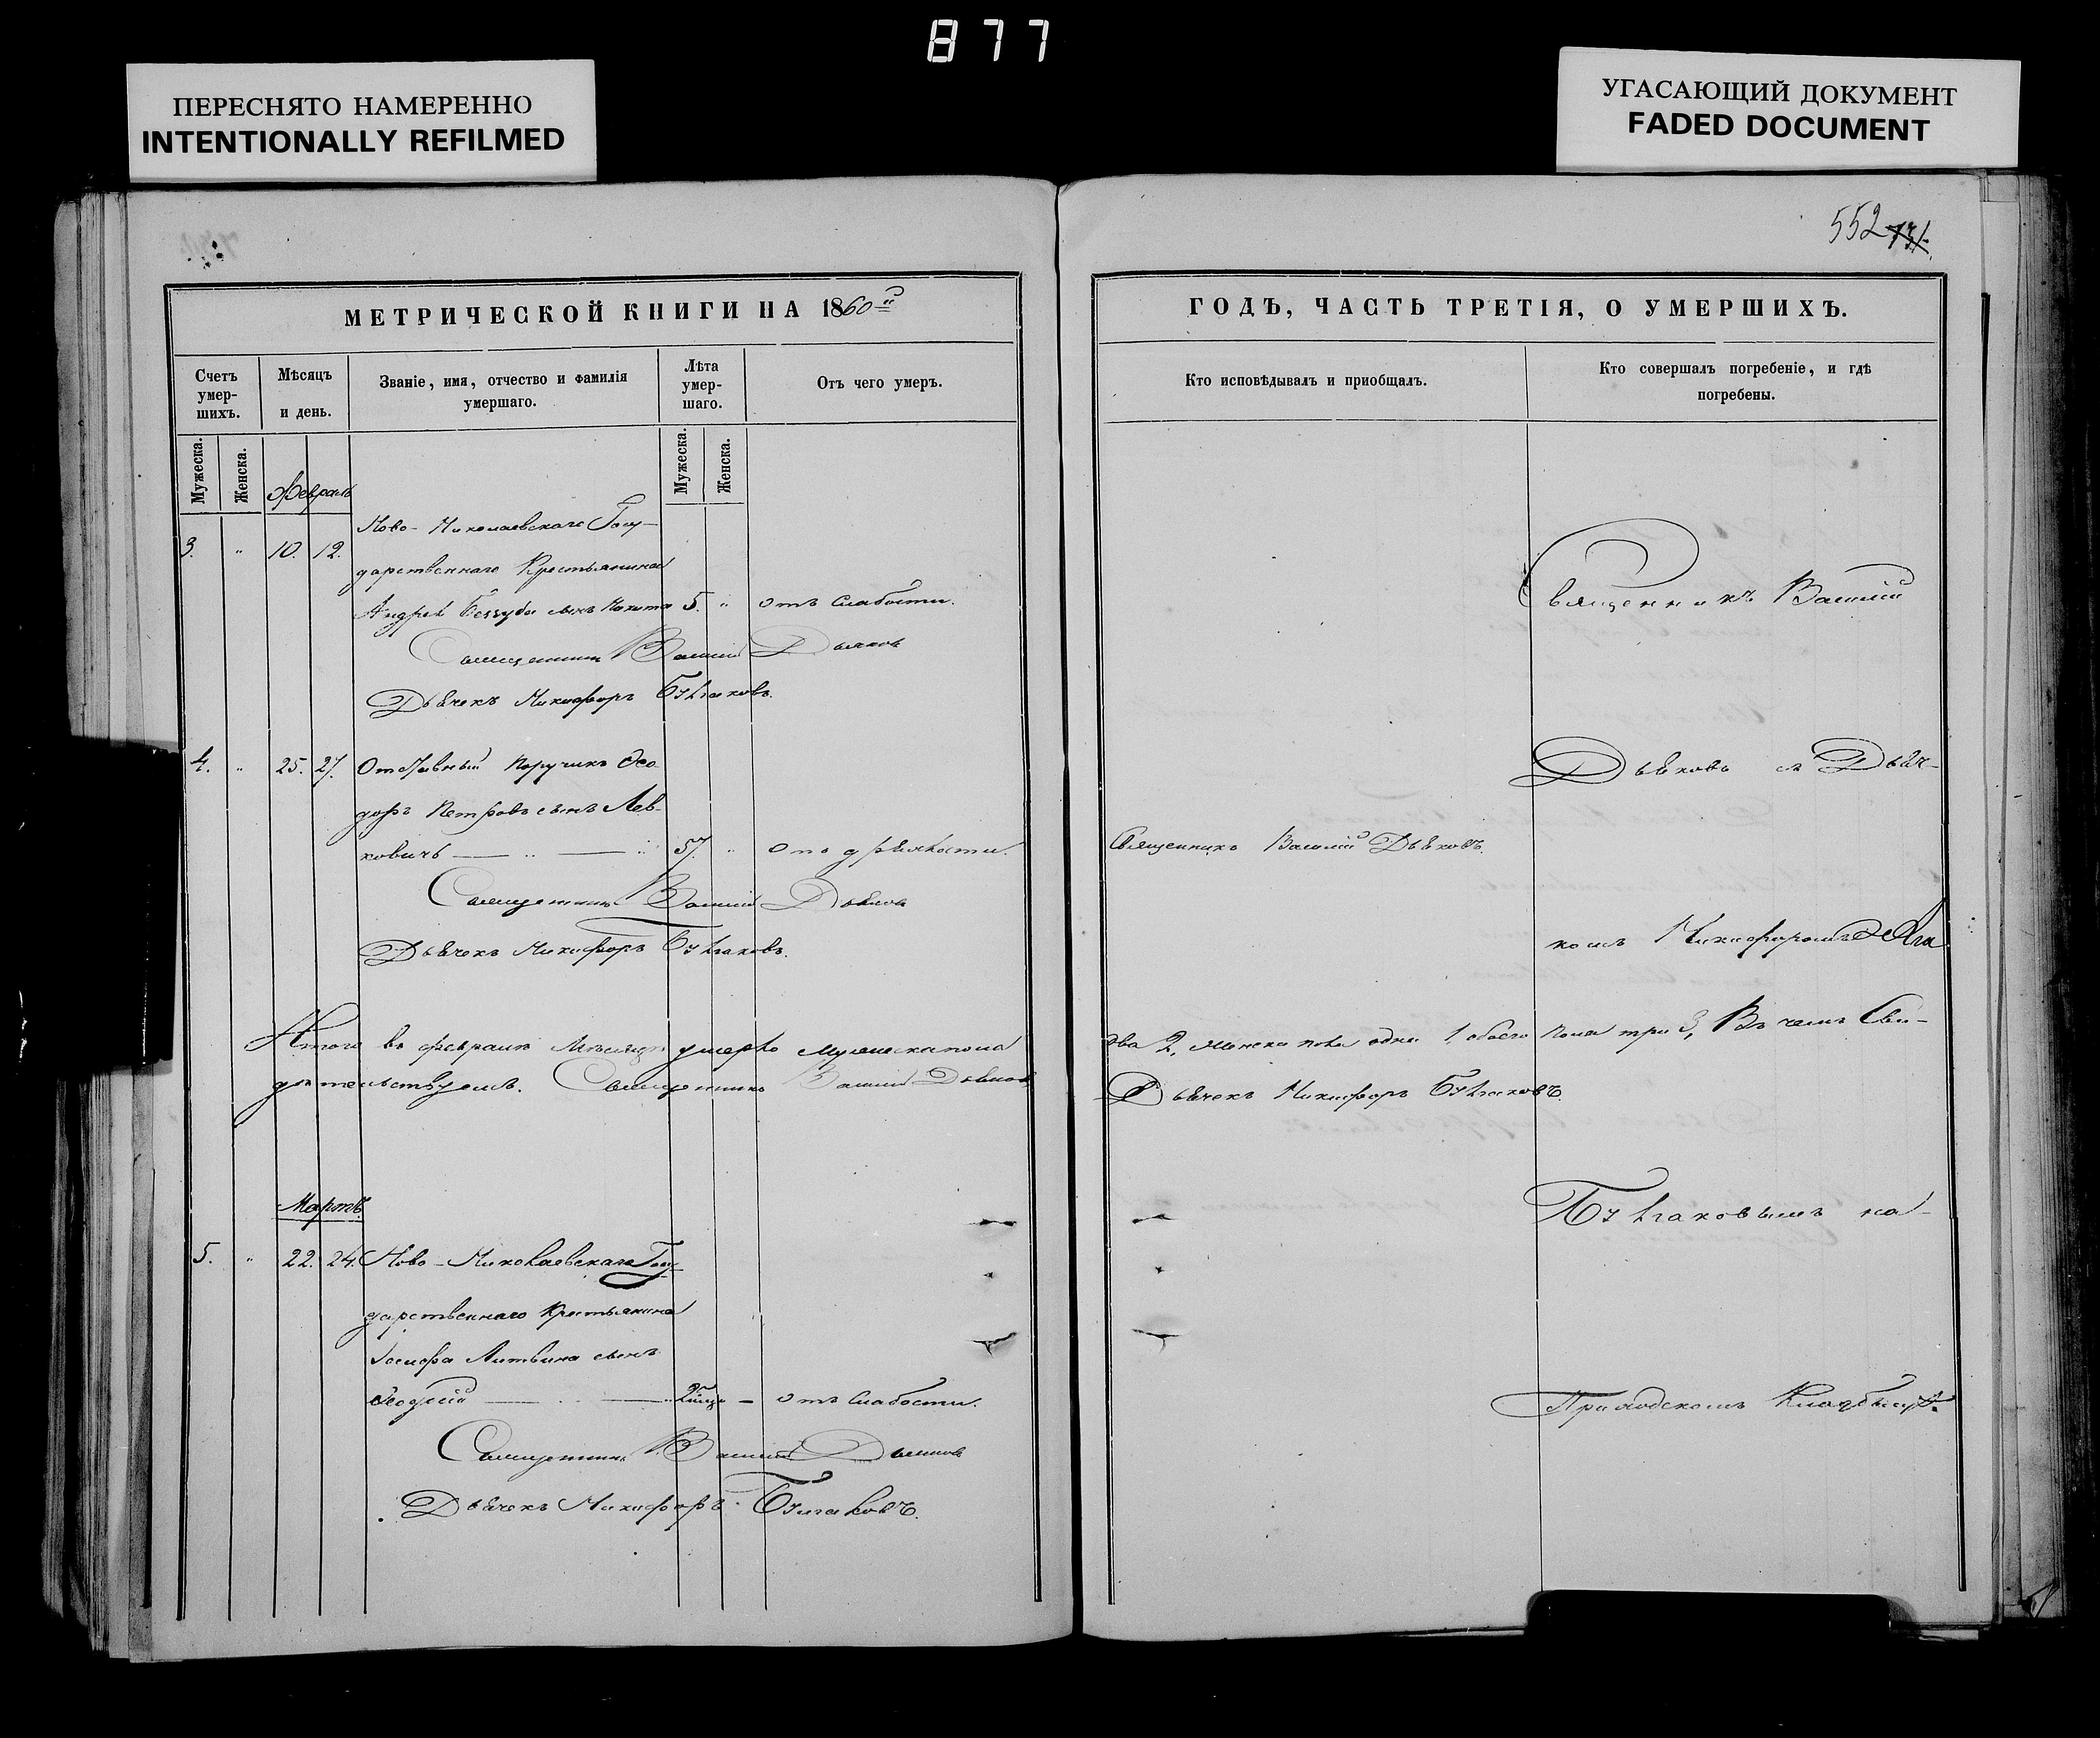 877
ПЕРЕСНЯТО НАМЕРЕННО
INTENTIONALLY REFILMED
УГАСАЮЩИЙ ДОКУМЕНТ
FADED DOCUMENT
552 131.
МЕТРИЧЕСКОЙ КНИГИ НА 1860й
Счетъ умер-шихъ.
Мѣсяцъ и день.
Званіе, имя, отчество и фамилія умершаго.
Лѣта умер-шаго.
Отъ чего умеръ.
Мужеска.
Женска.
Мужеска.
Женска.
Февраль
Ново-Николаевскаго Госу-
3. " 10. 12.
дарственнаго Крестьянина
Андрея Беззуба сынъ Никита 5. " отъ слабости.
Священникъ Василій Дьяковъ
Дьячекъ Никифоръ Булгаковъ.
4. " 25. 27. Отставный Поручикъ Ѳео-
доръ Петровъ сынъ Лев-
ковичъ 57. " отъ дряхлости.
Священникъ Василій Дьяковъ
Дьячекъ Никифоръ Булгаковъ.
Итого въ февралѣ мѣсяцѣ умерло мужеска пола
дѣтельствуемъ. Священникъ Василій Дьяковъ
Мартъ.
5. " 22. 24. Ново-Николаевскаго Госу-
дарственнаго Крестьянина
Іосифа Литвина сынъ
отъ слабости.
Священникъ Василій Дьяковъ
Дьячекъ Никифоръ Булгаковъ.
ГОДЪ, ЧАСТЬ ТРЕТІЯ, О УМЕРШИХЪ.
Кто исповѣдывалъ и приобщалъ.
Кто совершалъ погребеніе, и гдѣ погребены.
Священникъ Василій
Дьяковъ съ Дьяч-
Священникъ Василій Дьяковъ.
комъ Никифоромъ
два 2, женска пола одна 1. обоего пола три 3, Въ чемъ Сви-
Дьячекъ Никифоръ Булгаковъ.
Булгаковымъ на
Приходскомъ Кладбищѣ.